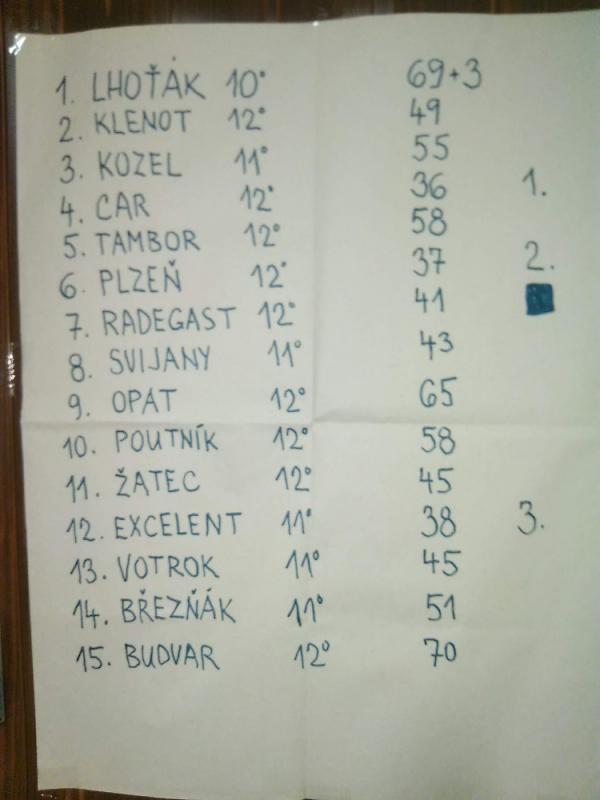 1. LHOŤÁK 10° 69+3
2. KLENOT 12° 49
3. KOZEL 11° 55
4. CAR 12° 36 1.
5. TAMBOR 12° 58
6. PLZEŇ 12° 37 2.
7. RADEGAST 12° 41
8. SVIJANY 11° 43
9. OPAT 12° 65
10. POUTNÍK 12° 58
11. ŽATEC 12° 45
12. EXCELENT 11° 38 3.
13. VOTROK 11° 45
14. BŘEZŇÁK 11° 51
15. BUDVAR 12° 70